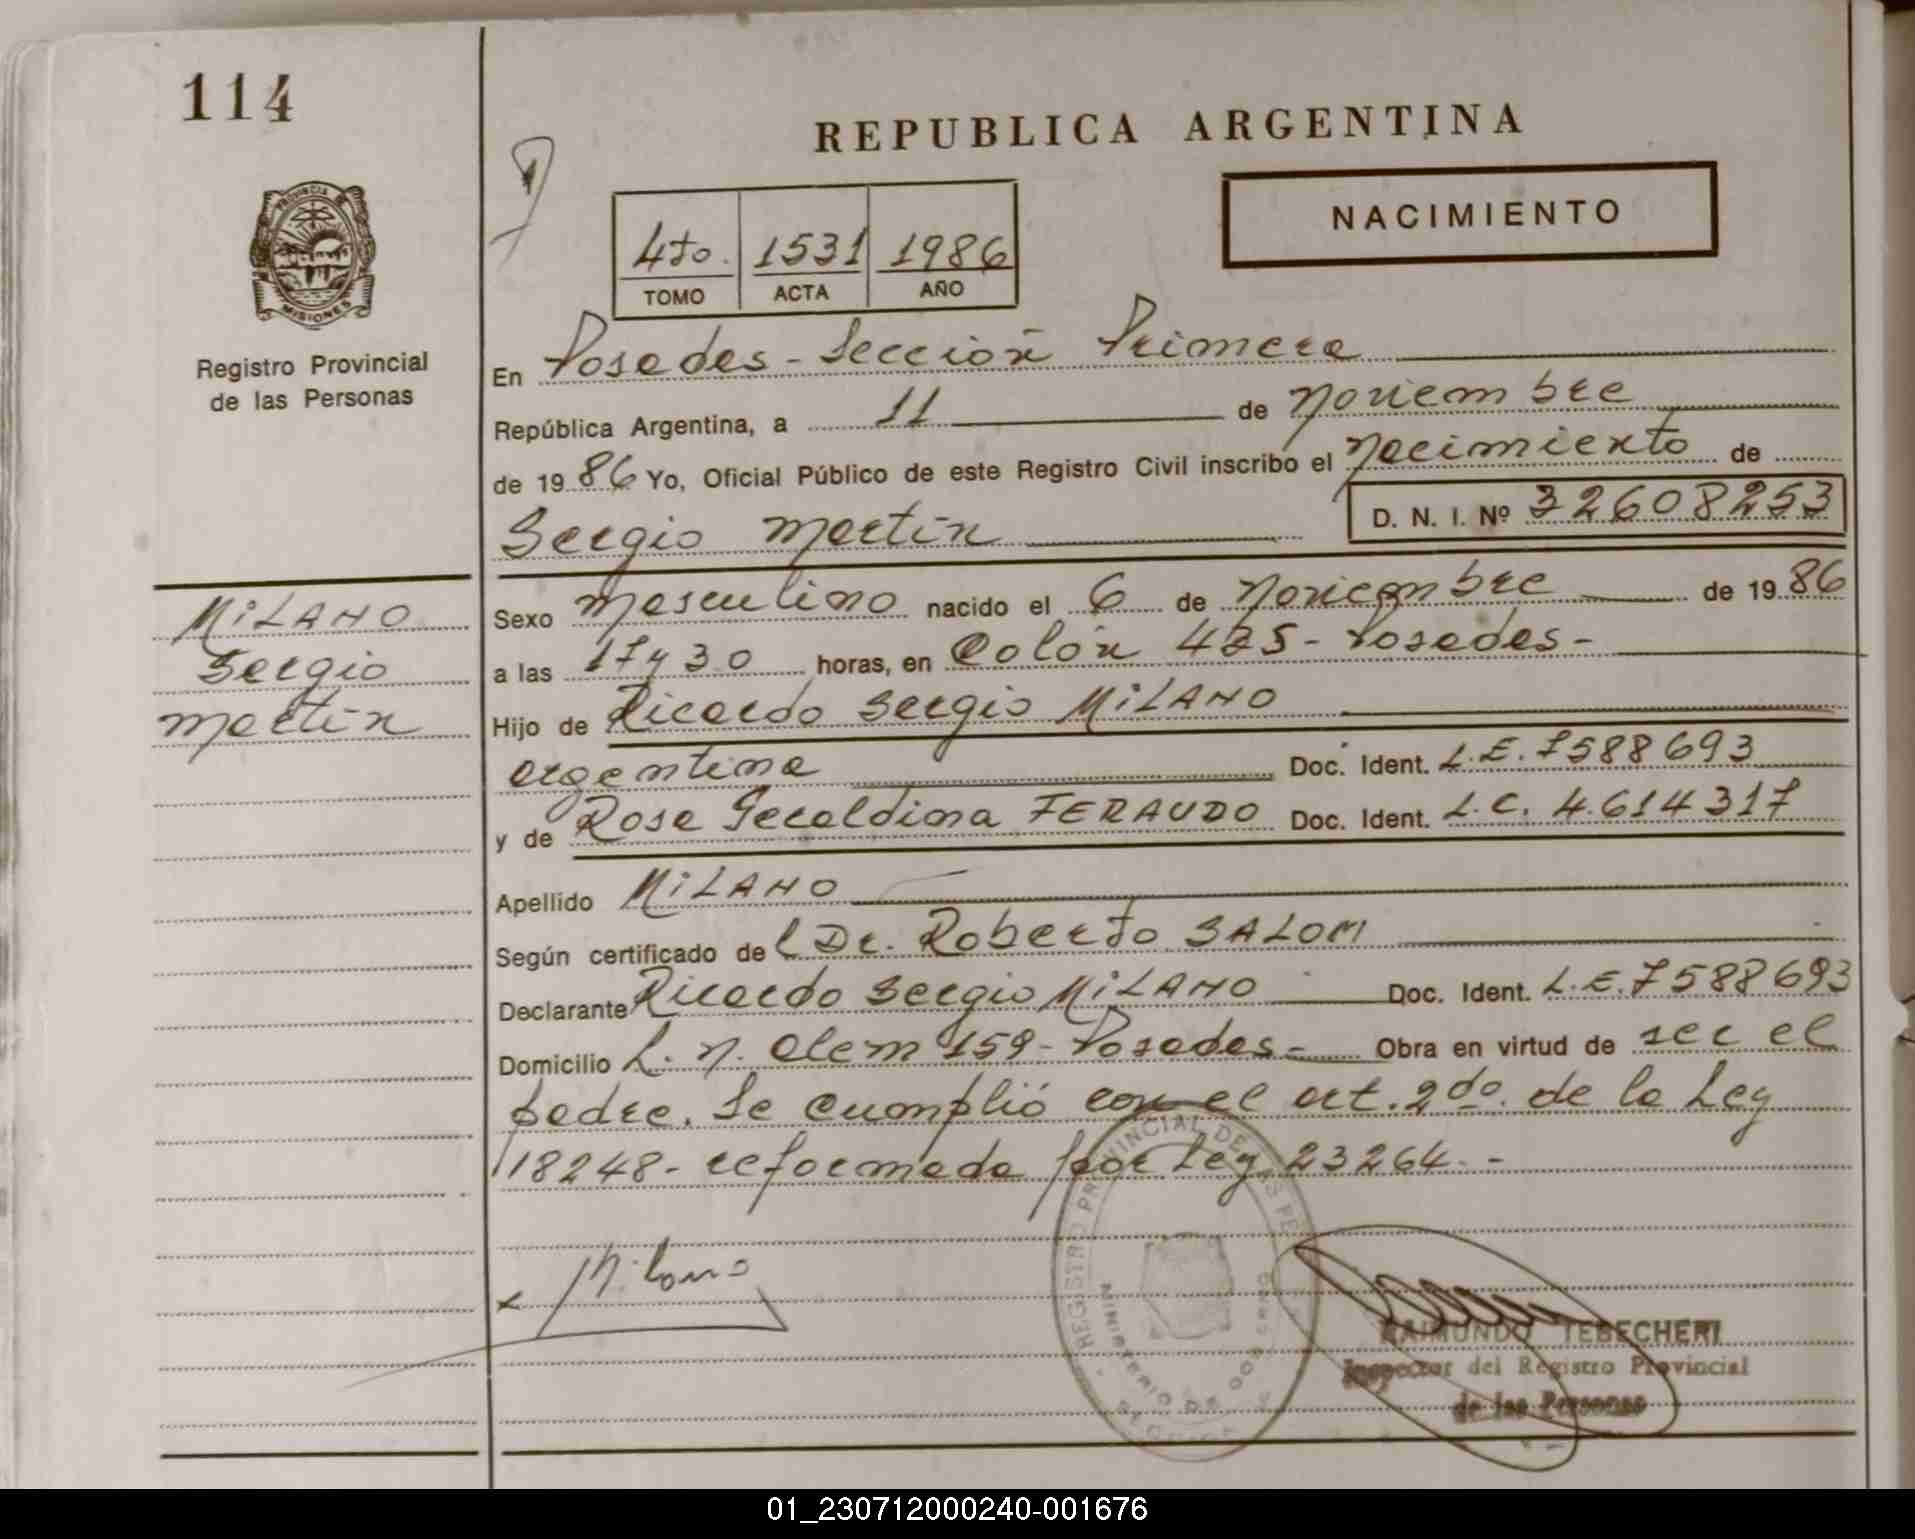 114
REPUBLICA ARGENTINA
NACIMIENTO
4to. 1531 1986
TOMO ACTA AÑO
PROVINCIA
MISIONES
Registro Provincial
de las Personas
En Posadas - Sección Primera
República Argentina, a 11 de Noviembre
de 1986 Yo, Oficial Público de este Registro Civil inscribo el Nacimiento de
Sergio Martín D. N. I. Nº 32608253
MiLANO
Sergio
Martín
Sexo Masculino nacido el 6 de Noviembre de 1986
a las 17y30 horas, en Colón 425 - Posadas -
Hijo de Ricardo Sergio MiLANO
argentina Doc. Ident. L.E. 7588693
y de Rosa Geraldina FERAUDO Doc. Ident. L.C. 4.614317
Apellido MiLANO
Según certificado del Dr. Roberto SALOM
Declarante Ricardo Sergio MiLANO Doc. Ident. L.E. 7588693
Domicilio L. N. Alem 159 - Posadas - Obra en virtud de ser el
padre. Se cumplió con el art. 2do. de la Ley
18248 - reformada por Ley 23264 -
x Milano
REGISTRO PROVINCIAL DE LAS PE
MINISTERIO DE GOBIERNO
RAIMUNDO TEBECHERI
Inspector del Registro Provincial
de las Personas
01_230712000240-001676